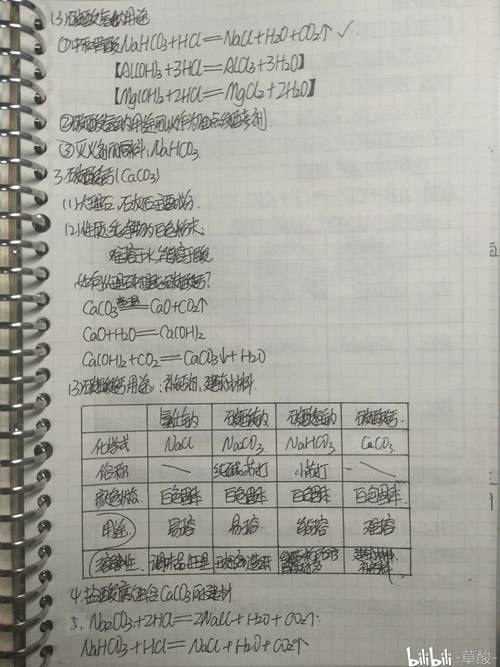 (3)碳酸氢钠的用途
①中和胃酸NaHCO3+HCl=NaCl+H2O+CO2↑ ✓
【Al(OH)3+3HCl=AlCl3+3H2O】
【Mg(OH)2+2HCl=MgCl2+2H2O】
②碳酸氢钠的用途可以作为
③灭火剂的原料,NaHCO3
3.碳酸钙(CaCO3)
(1)大理石、石灰石主要成分.
(2)性质:白色粉末.
难溶于水,能溶于酸
CaCO3 高温 CaO+CO2↑
CaO+H2O=Ca(OH)2
Ca(OH)2+CO2=CaCO3↓+H2O
(3)碳酸钙用途:补钙剂,建筑材料.
氯化钠 碳酸钠 碳酸氢钠 碳酸钙.
化学式 NaCl Na2CO3 NaHCO3 CaCO3
俗称 ╲ 纯碱、苏打 小苏打 ╲
颜色状态 白色固体 白色固体 白色固体 白色固体
用途 易溶 易溶 能溶 难溶
溶解性
4.盐酸 CaCO3 建材
5. Na2CO3+2HCl=2NaCl+H2O+CO2↑
NaHCO3+HCl=NaCl+H2O+CO2↑
bilibili -草酸-